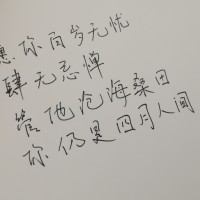 愿你百岁无忧
肆无忌惮
管他沧海桑田
你仍是四月人间